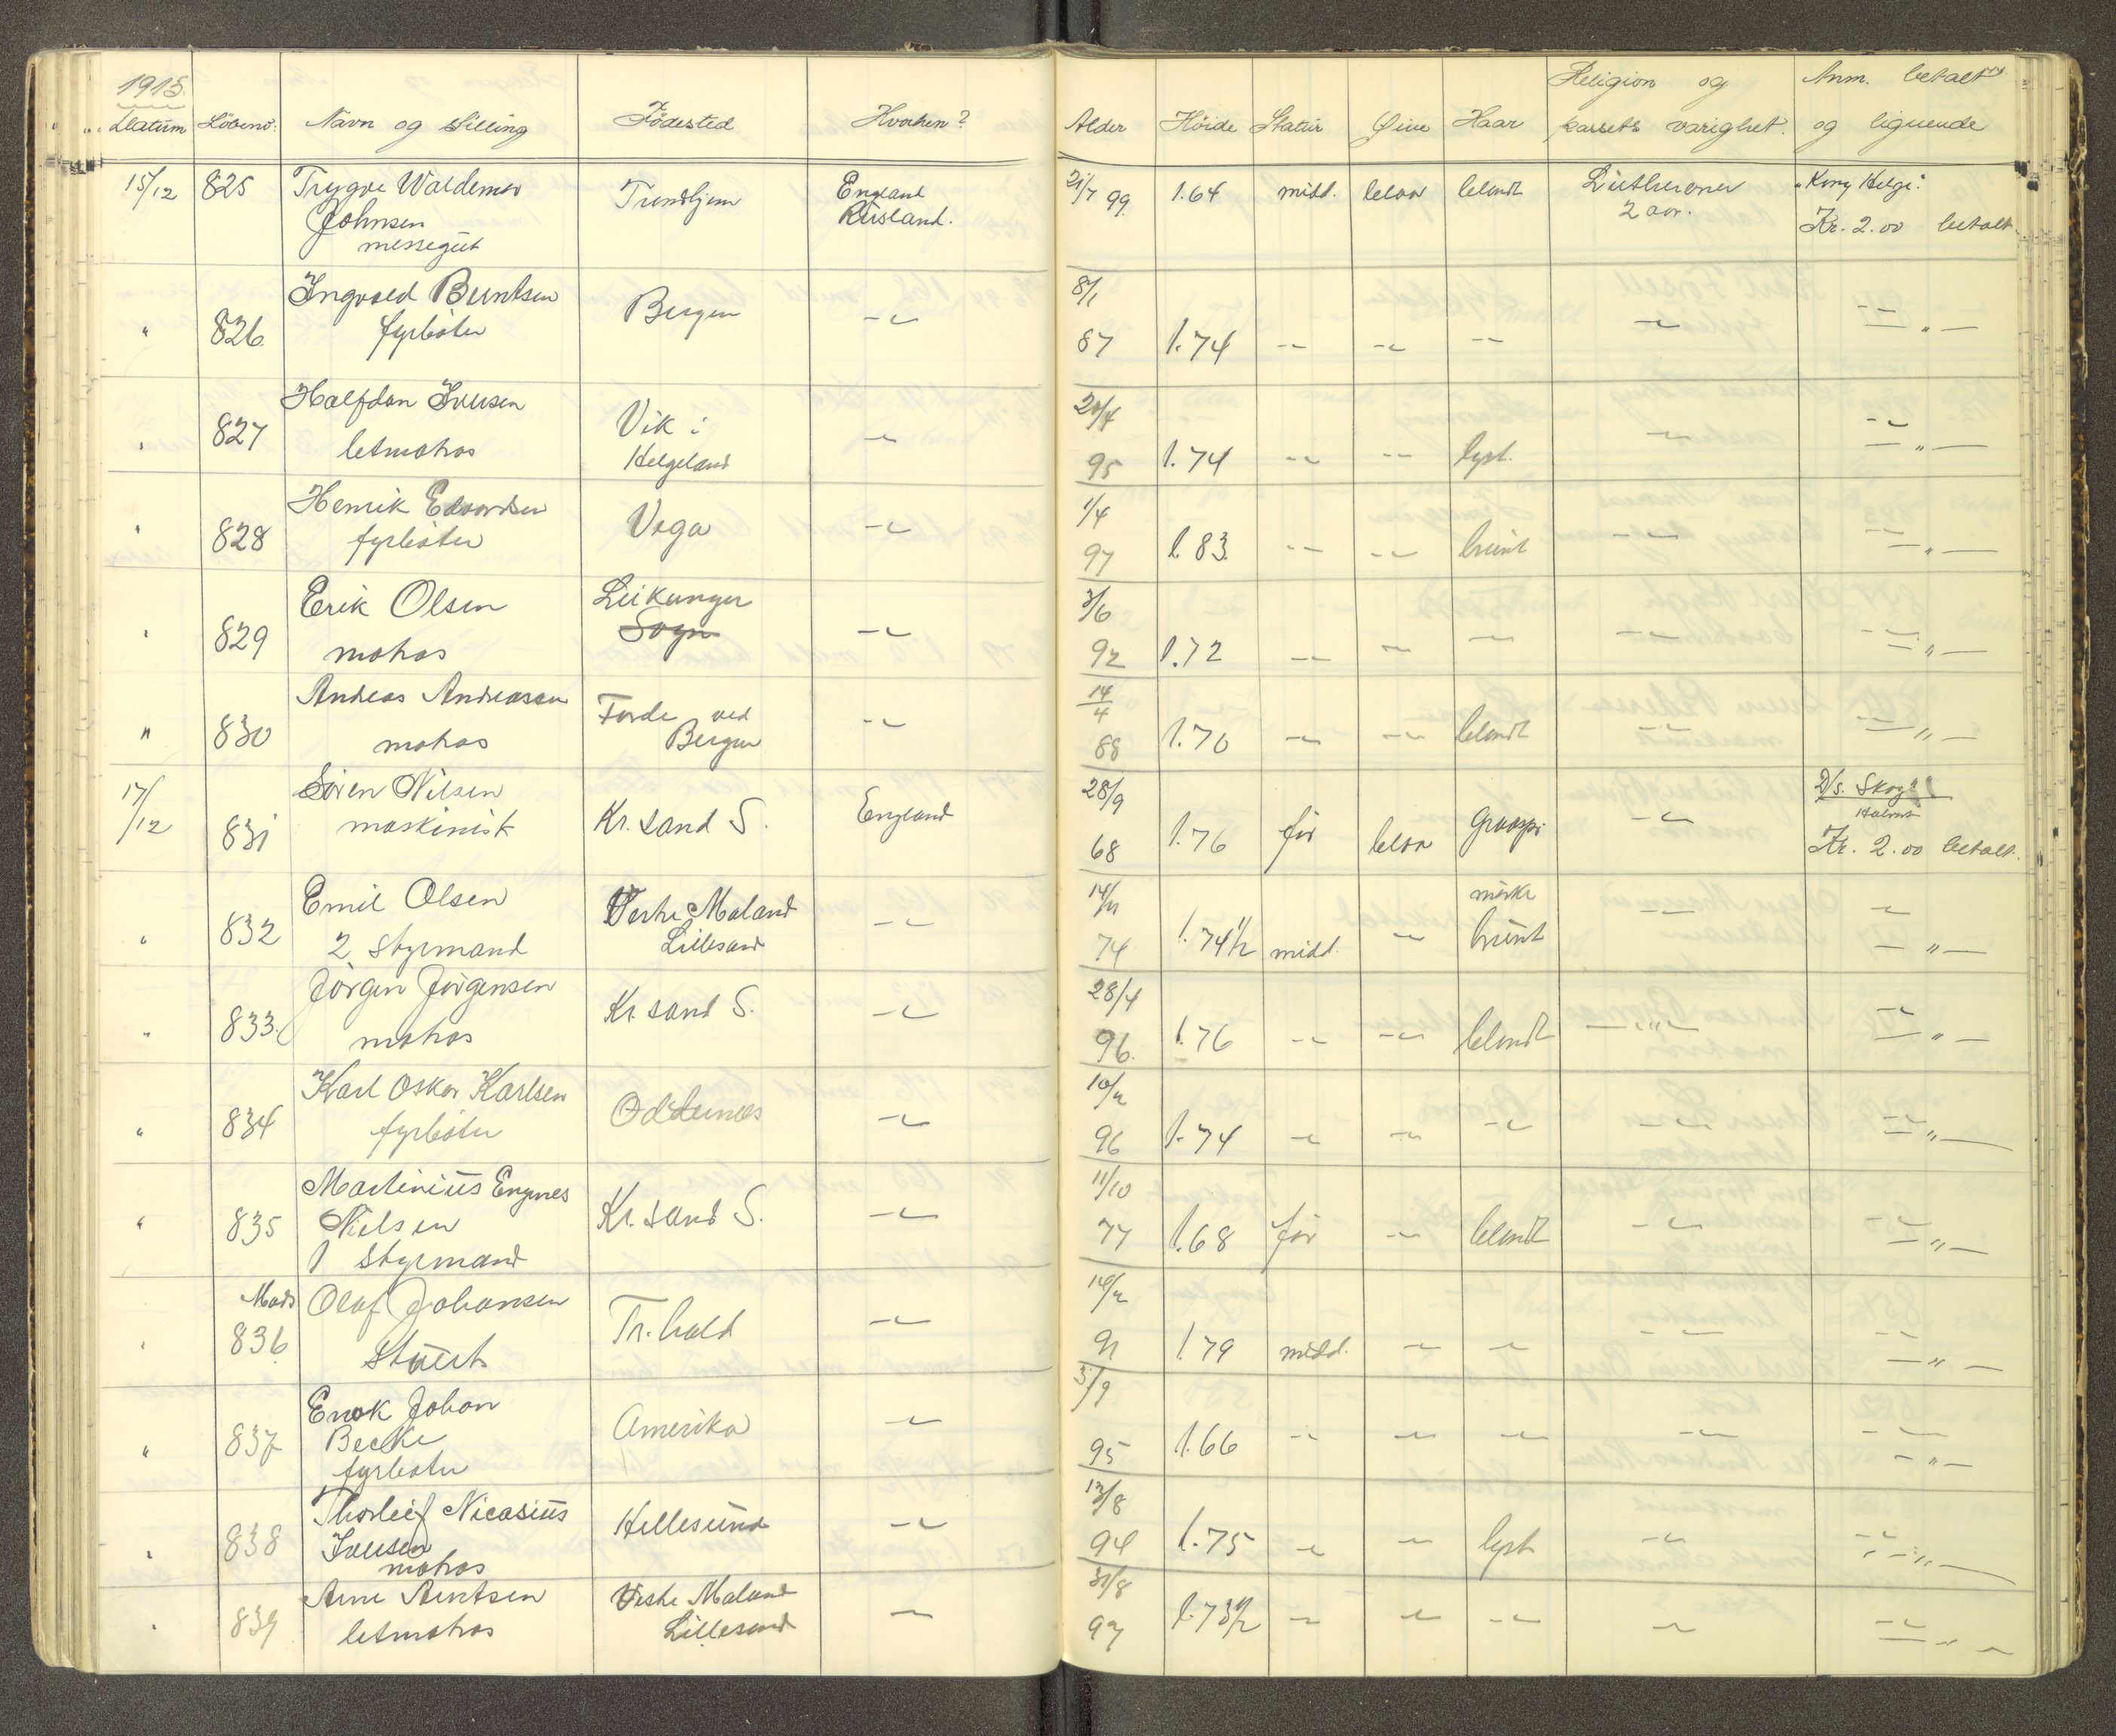 1915.
Datum Löbeno: Navn og stilling Födested Hvorhen? Alder Höide Statur Öine Haar Religion og passets varighet. Anm. betalt og lignende
15/12 825 Trygve Waldemar Johnsen messegut Trondhjem England Rusland. 21/7 99. 1.64 midd. blaa blondt Lutheraner 2 aar. "Kong Helge". Kr. 2.00 betalt.
" 826. Ingvald Berntsen fyrböter Bergen -"- 8/1 87 1.74 -"- -"- -"- -"- -"- -"-
" 827 Halfdan Iversen letmatros Vik i Helgeland -"- 20/4 95 1.74 -"- -"- lyst. -"- -"- -"-
" 828 Henrik Edvardsen fyrböter Vega -"- 1/4 97 1.83. -"- -"- brunt -"- -"- -"-
" 829 Erik Olsen matros Leikanger Sogn -"- 3/6 92 1.72 -"- -"- -"- -"- -"- -"-
" 830 Andreas Andreassen matros Förde ved Bergen -"- 14/4 88 1.70 -"- -"- blondt -"- -"- -"-
17/12 831 Sören Nilsen maskinist Kr.sand S. England 28/9 68 1.76 før blaa graaspr -"- D/s. "Skog" Holm Kr. 2.00 betalt.
" 832 Emil Olsen 2 styrmand Vestre Moland Lillesand -"- 14/11 74 1.74 1/2 midd. -"- mörke brunt -"- -"- -"-
" 833. Jörgen Jörgensen matros Kr.sand S. -"- 28/4 96. 1.76 -"- -"- blondt -"- -"- -"-
" 834 Karl Oskar Karlsen fyrböter Oddernes -"- 10/12 96 1.74 -"- -"- -"- -"- -"- -"-
" 835 Martinius Nielsen 1 styrmand Kr.sand S. -"- 11/10 77 1.68 før -"- blondt -"- -"- -"-
" 836 Mads Olaf Johansen Stuert Fr.hald -"- 1.79 midd. -"- -"- -"- -"- -"-
" 837 Enok Johan Becke fyrböter Amerika -"- 3/9 95 1.66 -"- -"- -"- -"- -"- -"-
" 838 Thorleif Nicasius Iversen matros Hellesund -"- 13/8 94 1.75 -"- -"- lyst -"- -"- -"-
" 839 Arne Arntsen letmatros Vestre Moland Lillesand -"- 31/8 97 1.73 1/2 -"- -"- -"- -"- -"- -"-